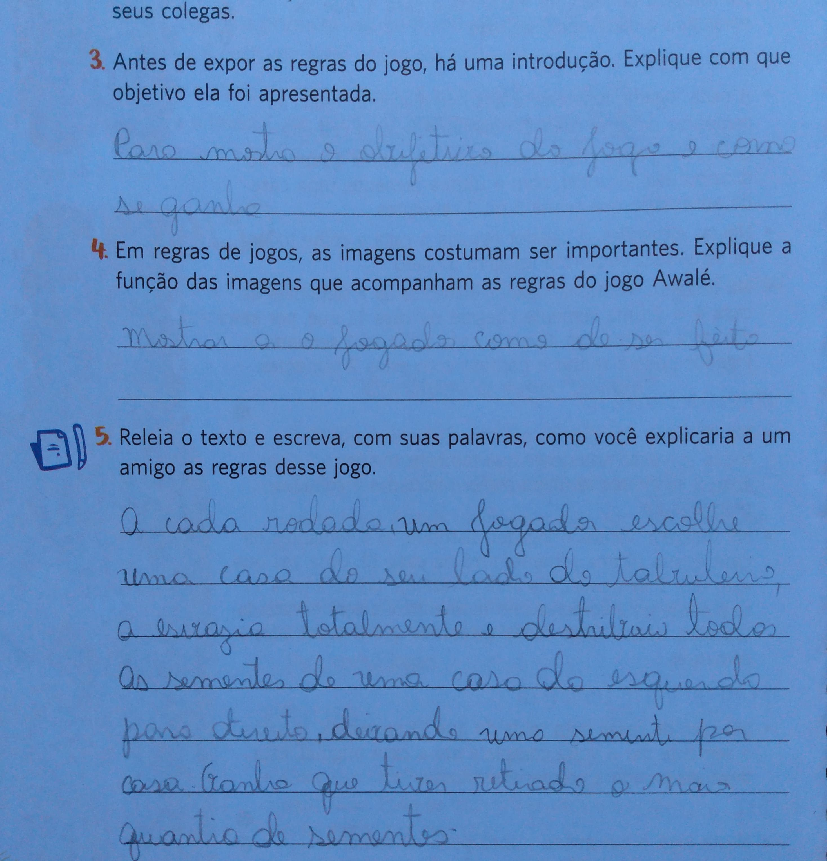 seus colegas.
3. Antes de expor as regras do jogo, há uma introdução. Explique com que
objetivo ela foi apresentada.
Para mostra o objetivo do jogo e como
se ganha
4. Em regras de jogos, as imagens costumam ser importantes. Explique a
função das imagens que acompanham as regras do jogo Awalé.
Mostrar a o jogado como de ser feito
5. Releia o texto e escreva, com suas palavras, como você explicaria a um
amigo as regras desse jogo.
A cada rodada, um jogador escolhe
uma casa do seu lado do tabuleiro,
a esvazia totalmente e destribui todas
As sementes de uma casa da esquerda
para direita, deixando uma sement por
casa Ganha que tiver retirado a maor
quantia de sementes.